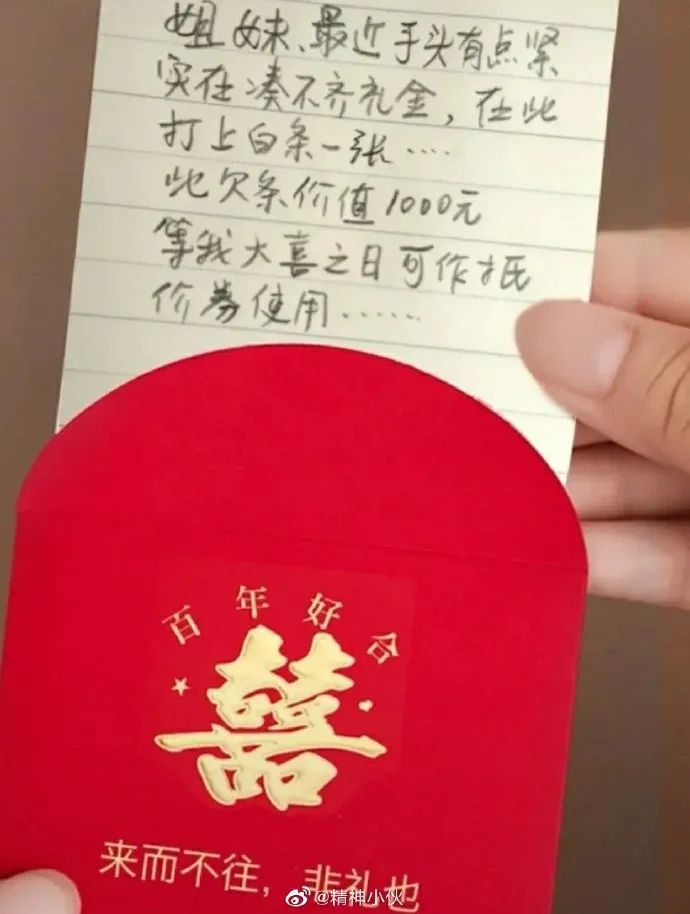 姐妹、最近手头有点紧
实在凑不齐礼金，在此
打上白条一张……
此欠条价值1000元
等我大喜之日可作抵
价券使用……
百年好合
囍
来而不往，非礼也
@精神小伙